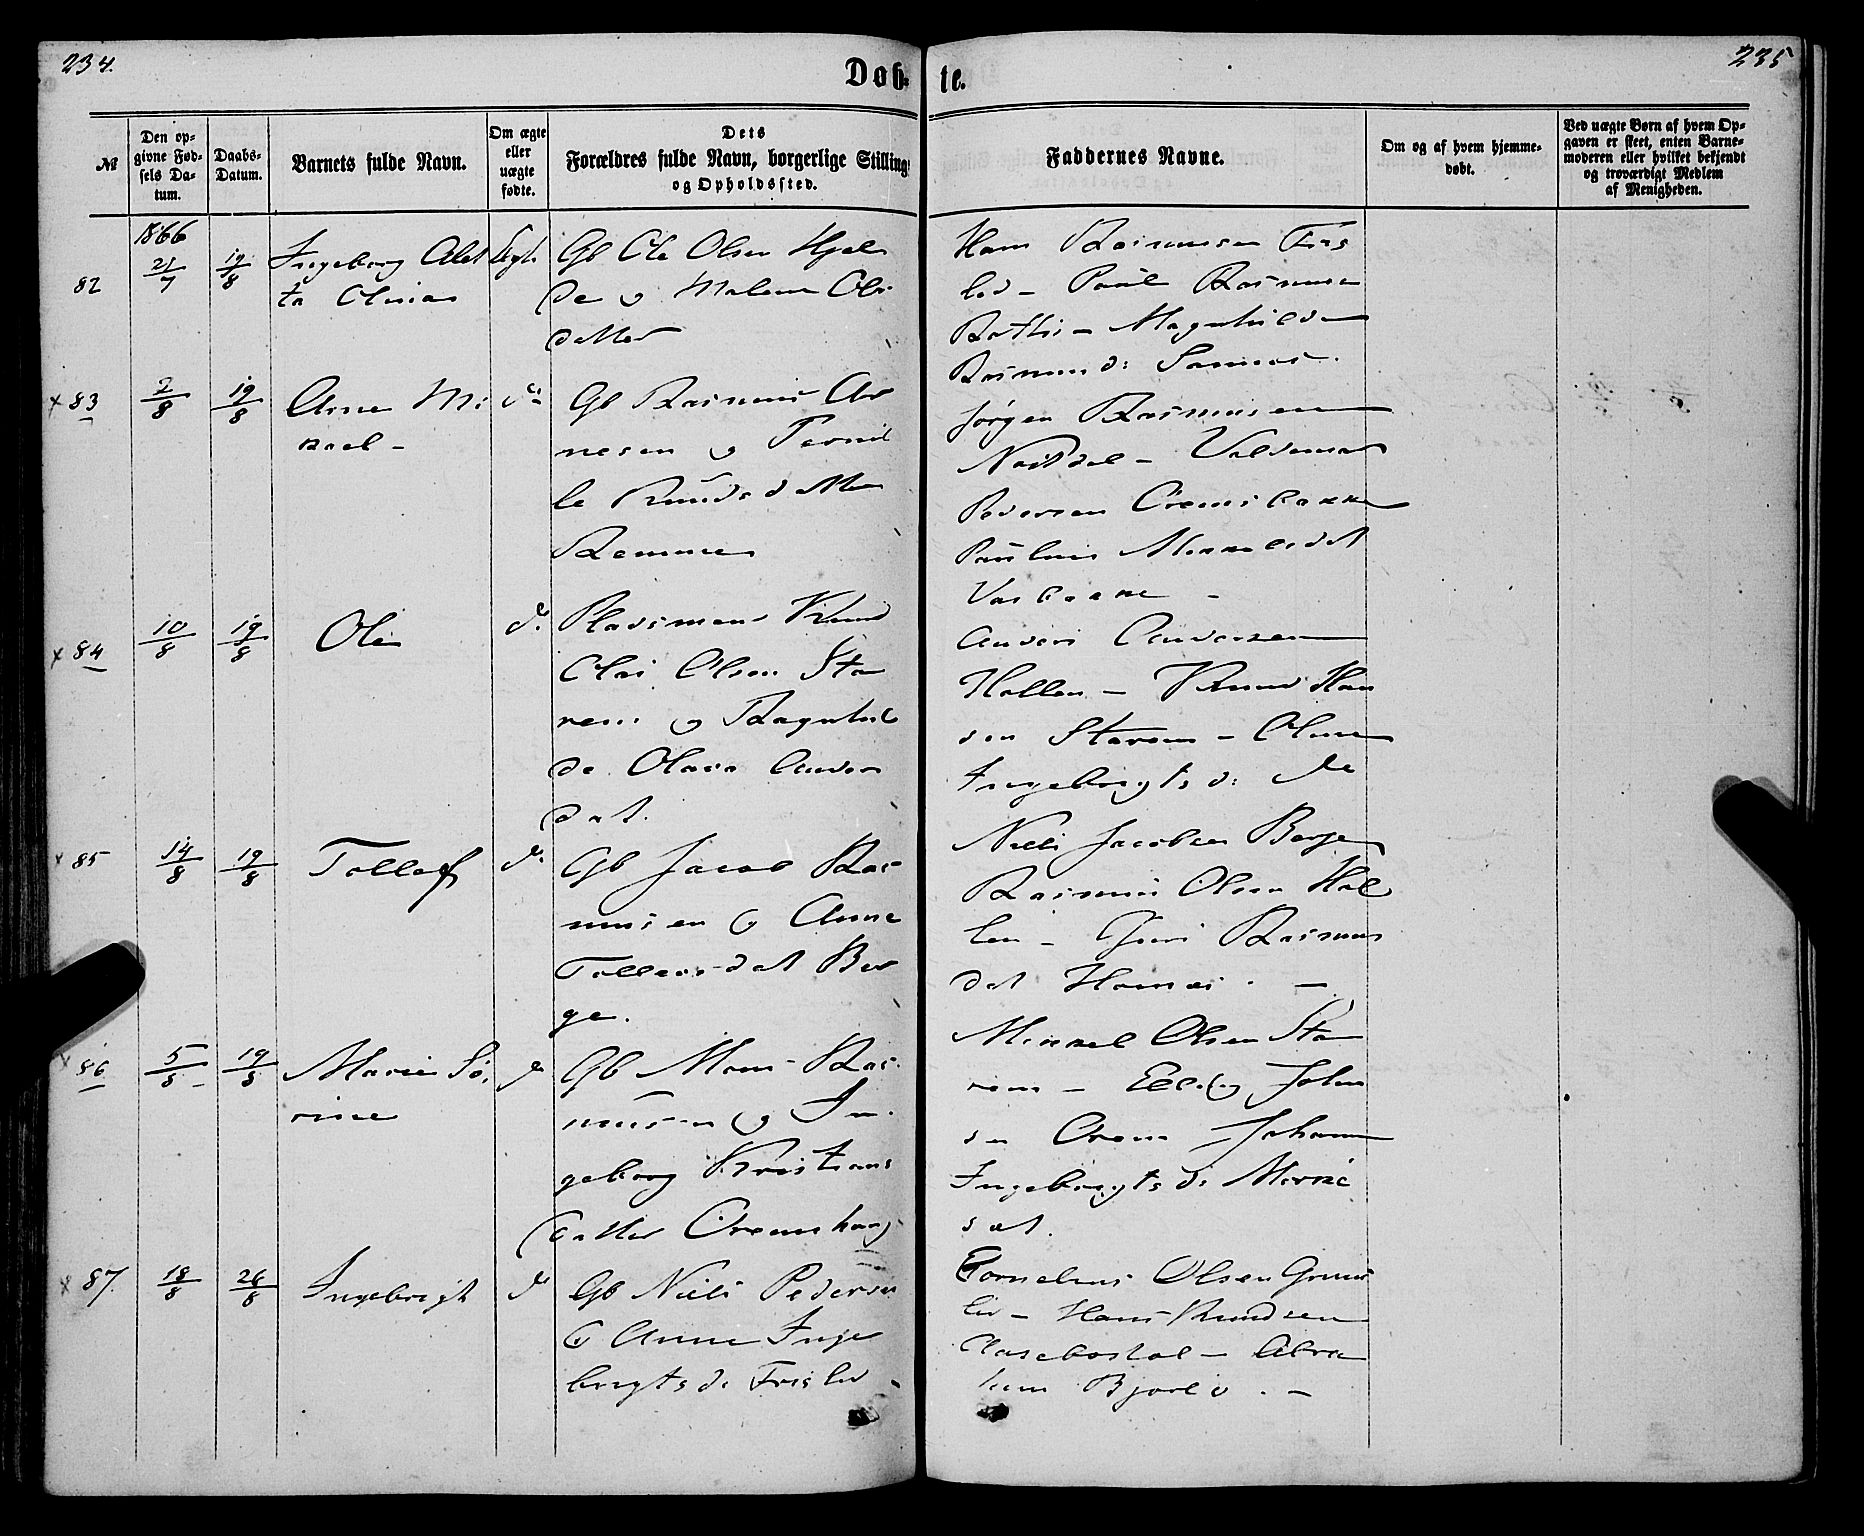 234.
235
Døb-
te.
№
Den op-
givne Fød-
sels Da-
tum.
Daabs-
Datum.
Barnets fulde Navn.
Om ægte
eller
uægte
fødte.
Dets
Forældres fulde Navn, borgerlige Stilling
og Opholdssted.
Faddernes Navne.
Om og af hvem hjemme-
døbt.
Ved uægte Børn af hvem Op-
gaven er skeet, enten Barne-
moderen eller hvilket bekjendt
og troværdigt Medlem
af Menigheden.
1866
82
21/7
19/8
Ingeborg Alet
ta Olina
Ægte
Gb Ole Olsen Hjel
de og Malene Ols
datter
Hans Rasmusen Fris
lid - Paul Rasmusen
Magnhilde
Rasmusd:
x 83
2/8
19/8
Arne Mi
kael -
d:
Gb Rasmus Ar
nesen og Pernil
le Knudsdatter
Remmen
Jørgen Rasmusen
Nordal - Valdemar
Pedersen Oremsbakke
Paulus Mikkelsdat
x 84
10/8
19/8
Ole
d.
Pladsmand Knud
Olai Olsen Sta
rem og Ragnhil
de Olava Anders
dat.
Anders Andersen
Hollen - Knud Han
sen Starem - Oline
Ingebrigts d: de
x 85
14/8
19/8
Tollef
d.
Gb Jacob Ras
musen og Anne
Tollevsdat Ber
ge.
Niels Jacobsen Berge
Rasmus Olsen Hol
len - Guri Rasmus
dat Homes . -
x 86
5/8
19/8
Marie Sø
rine
d
Gb Mons Ras
musen og In
geborg Kristians
datter Oremshaug
Mikkel Olsen Sta
rem - Elling John
sen Orem Johanne
Ingebrigts d:
x 87.
18/8
26/8
Ingebrigt
d
Gb Niels Pedersen
og Anne Inge
brigts d: Frislid -
Cornelius Olsen Gruns
lid - Hans Knudsen
Aasebøstøl - Abra
ham Bjørlo . -